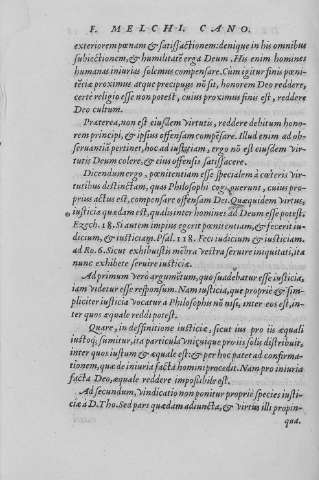 F. MELCHI. CANO.
exteriorem pœnam & satisfactionem: denique in his omnibus
subiectionem, & humilitatē ergà Deum. His enim homines
humanas iniurias solemus compensare. Cum igitur finis pœni-
tētiæ proximus atque præcipuus nō sit, honorem Deo reddere,
certè religio esse non potest, cuius proximus finis est, reddere
Deo cultum.
Præterea, non est eiusdem virtutis, reddere debitum hono-
rem principi, & ipsius offensam compēsare. Illud enim ad ob-
seruantiā pertinet, hoc ad iustitiam, ergo nō est eiusdem vir-
tutis Deum colere, & eius offensis satisfacere.
Dicendum ergo, pœnitentiam esse specialem à cæteris vir-
tutibus destinctam, quas Philosophi cognouerunt, cuius pro-
prius actus est, compensare offensam Dei. Quæquidem virtus,
iusticia quædam est, qualis inter homines ad Deum esse potest.
Ezech. 18. Si autem impius egerit pœnitentiam, & fecerit iu-
dicium, & iusticiam. Psal. 118. Feci iudicium & iusticiam.
ad Ro. 6. Sicut exhibuistis mēbra vestra seruire iniquitati, ita
nunc exhibete seruire iusticiæ.
Ad primum verò argumētum, quo suadebatur esse iusticia,
iam videtur esse responsum. Nam iusticia, quæ propriè & sim-
pliciter iusticia vocatur a Philosophis nō nisi, inter eos est, in-
ter quos æquale reddi potest.
Quare, in deffinitione iusticiæ, sicut ius pro iis æquali
iustoq; sumitur, ita particula vnicuique pro iis solis distribuit,
inter quos iustum & æquale est: & per hoc patet ad confirma-
tionem, quæ de iniuria facta homini procedit. Nam pro iniuria
facta Deo, æquale reddere impossibile est.
Ad secundum, vindicatio non ponitur propriè species iusti-
ciæ a D. Tho. Sed pars quædam adiuncta, & virtus illi propin-
qua.